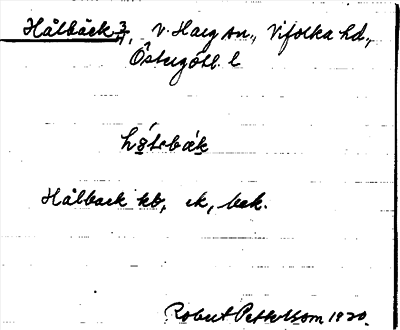 Hålbäck 3/4, V. Harg sn., Vifolka hd.,
Östergötl. l
Hålback kb, ck, bak.
Robert Pettersson 1920.